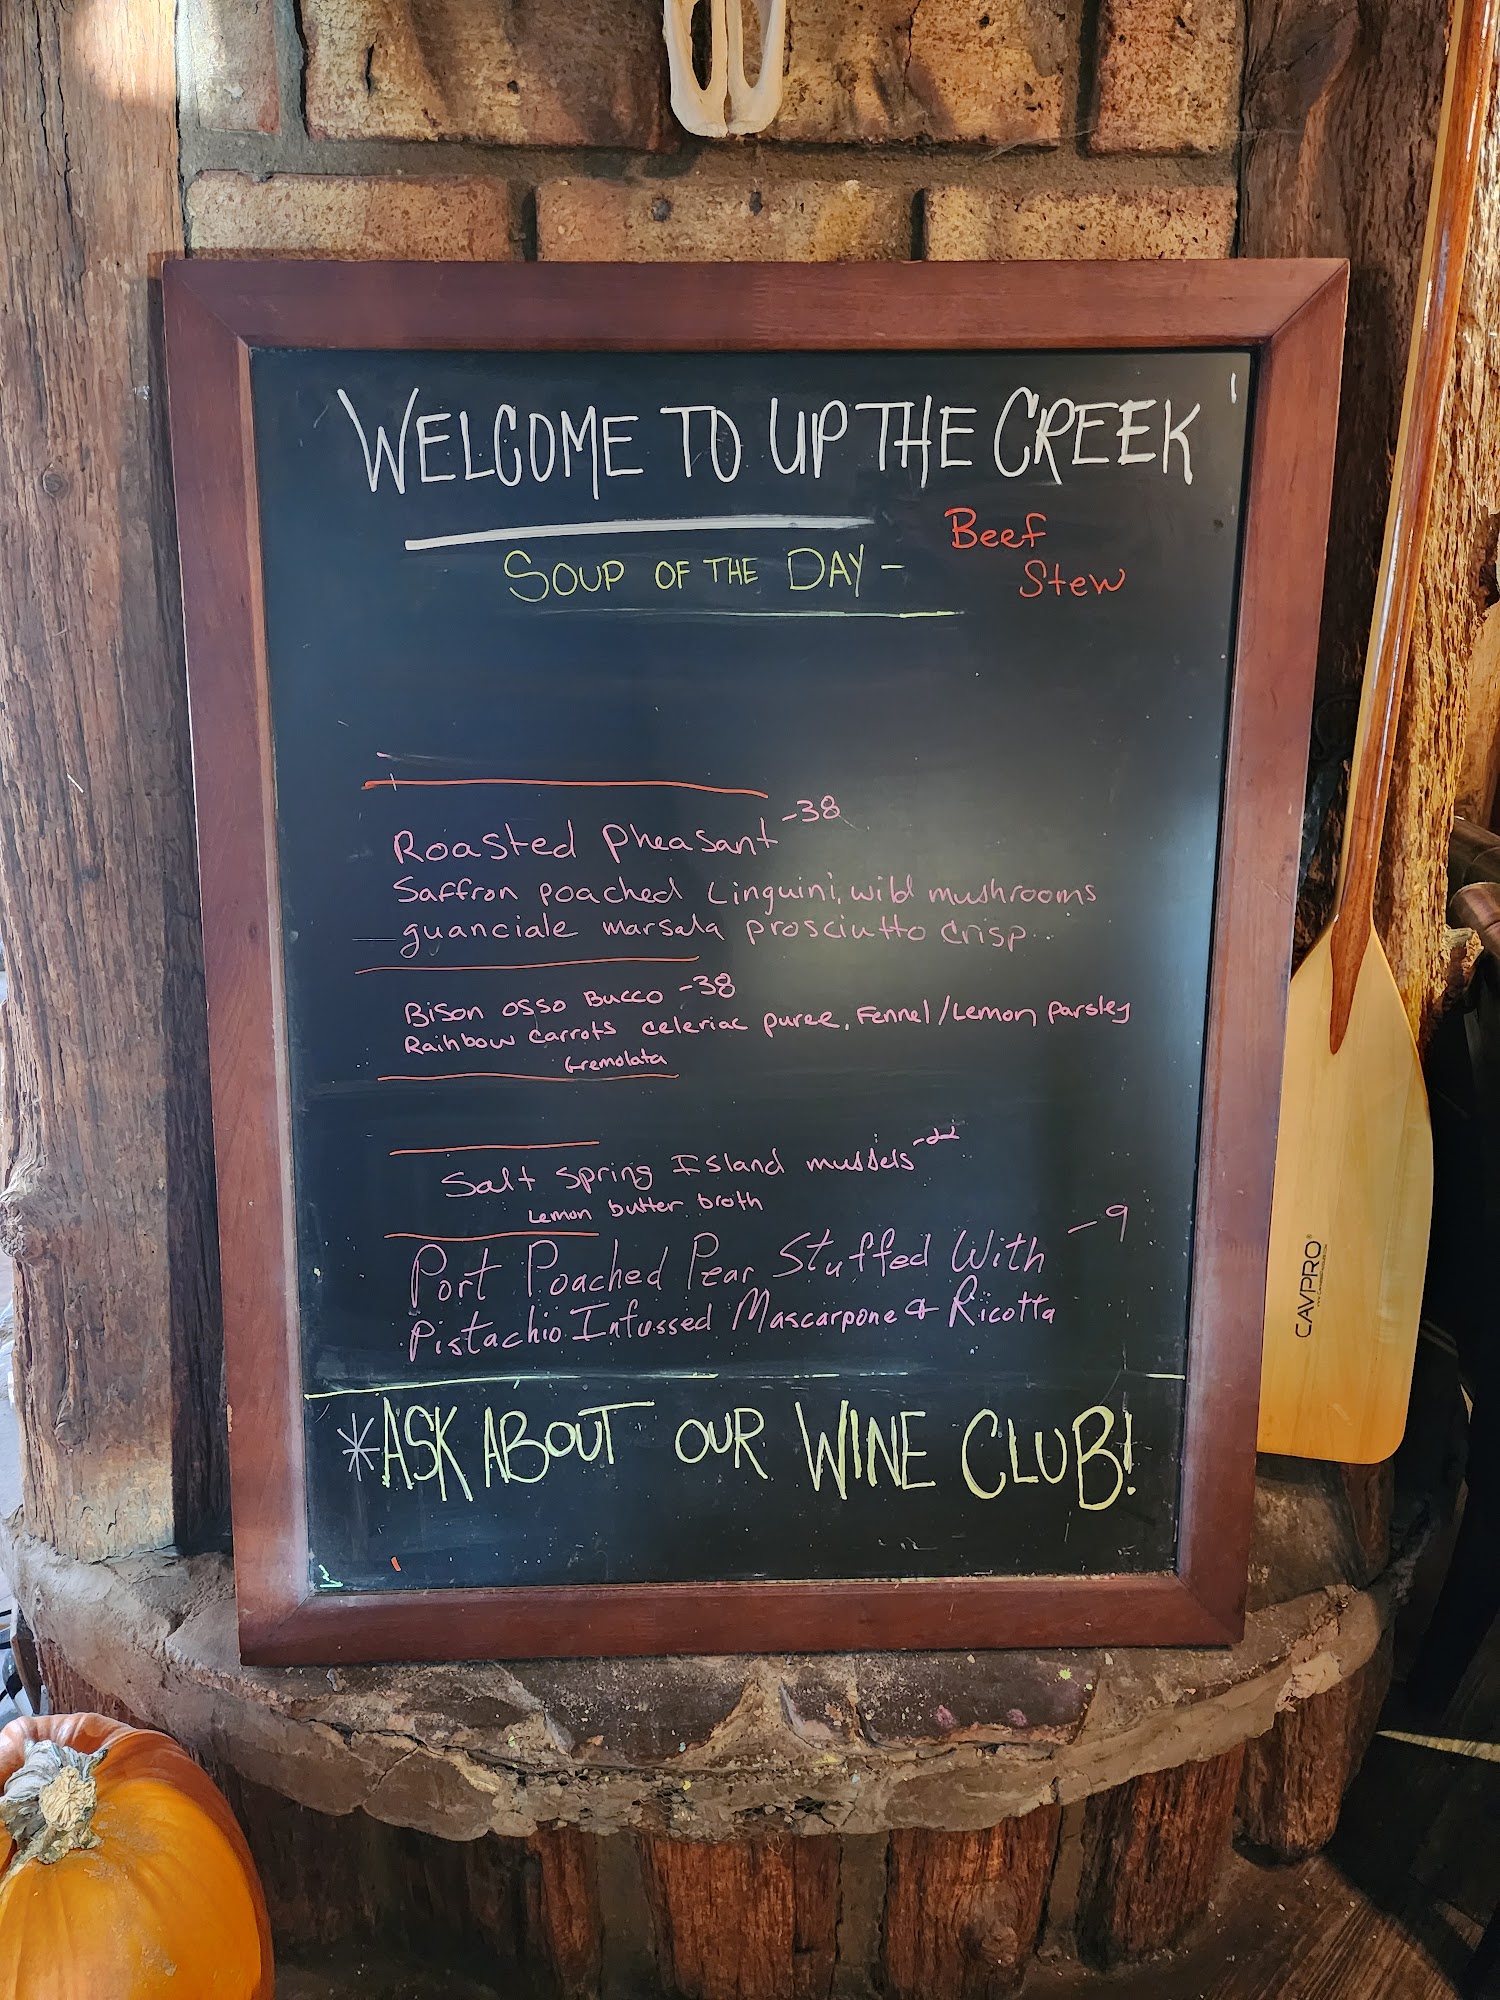 WELCOME TO UP THE CREEK
SOUP OF THE DAY - Beef
Stew
Roasted Pheasant -38
Saffron poached Linguini, wild mushrooms
guanciale marsala prosciutto crisp
Bison osso Bucco -38
Rainbow carrots celeriac puree, Fennel/Lemon parsley
Gremolata
Salt Spring Island mussels -22
Lemon butter broth
Port Poached Pear Stuffed With -9
Pistachio Infussed Mascarpone & Ricotta
*ASK ABOUT OUR WINE CLUB!
CAVPRO®